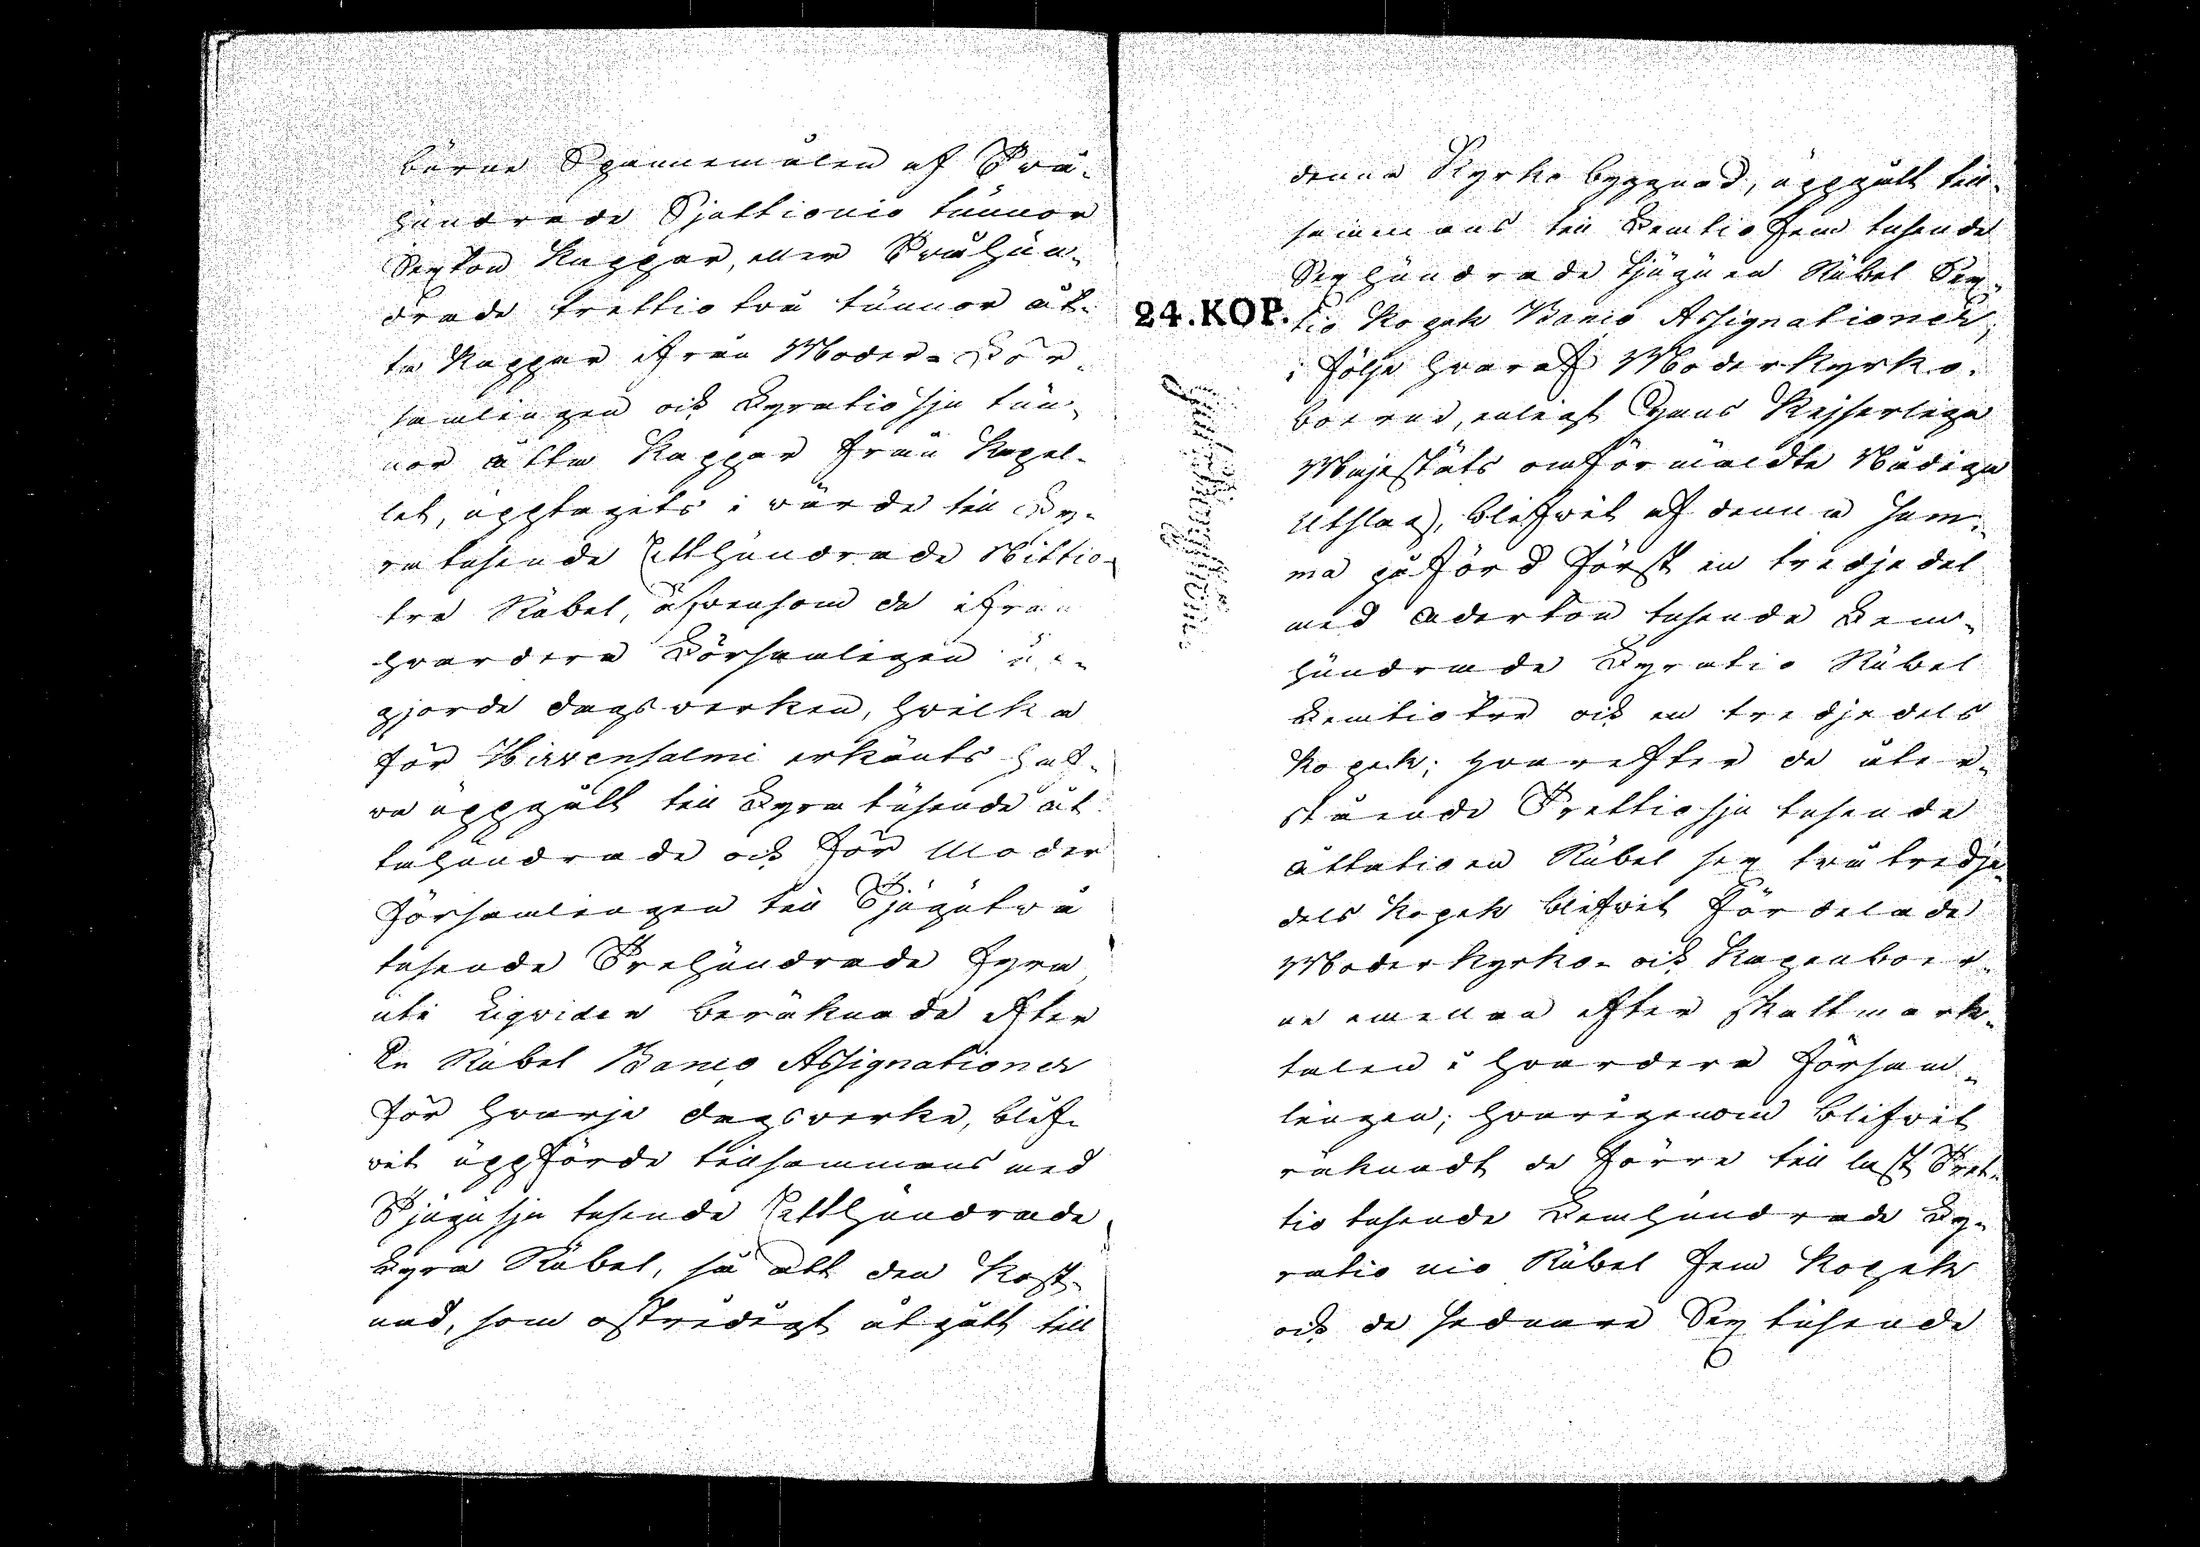 börne Spannemålen af Två-
hundrade Sjuttionio tunnor
Sexton Kappar, eller Tvåhun-
drade trettiotvå tunnor åt-
ta Kappar ifrån Moder-För-
samlingen och Fyratiosju tun-
nor åtta Kappar från Kapel-
let, upptagits i värde till Fy-
ratusende Etthundrade Nittio-
tre Rubel, äfvensom de ifrån
hvardera Församlingen
gjorde dagsverken, hvilka
för Hirvensalmi erkänts haf-
va uppgått till Fyratusende åt-
tahundrade och för Moder
församlingen till Tjugutvå
tusende Trehundrade fyra,
uti Liqviden beräknade efter
En Rubel Banco Assignationer
för hvarje dagsverke, blif-
vit uppförde tillsammans med
Tjugusju tusende Etthundrade
Fyra Rubel, så att den Kost-
nad, som ostridigt åtgått till
denna Kyrkobyggnad, uppgått till-
sammans till Femtiofem tusende
Sexhundrade tjuguen Rubel Sex-
24.KOP. tio Kopek Banco Assignationer;
i följe hvaraf Moderkyrko-
boerne, enligt Hans Kejserliga
Majestäts omförmäldte Nådiga
Utslag, blifvit af denna sum-
ma påförd först en tredjedel
med Aderton tusende Fem-
hundrade Fyratio Rubel
Femtiotre och en tredjedels
Kopek; hvarefter de åter-
stående Trettiosju tusende
åttatioen Rubel sex två tredje-
dels Kopek blifvit fördelade
Moderkyrko- och Kapellboer-
ne emellan efter skattmark-
talen i hvardera Försam-
lingen; hvarigenom blifvit
räknadt de förre till last Tret-
tio tusende Femhundrade Fy-
ratio nio Rubel fem Kopek
och de sednare Sex tusende